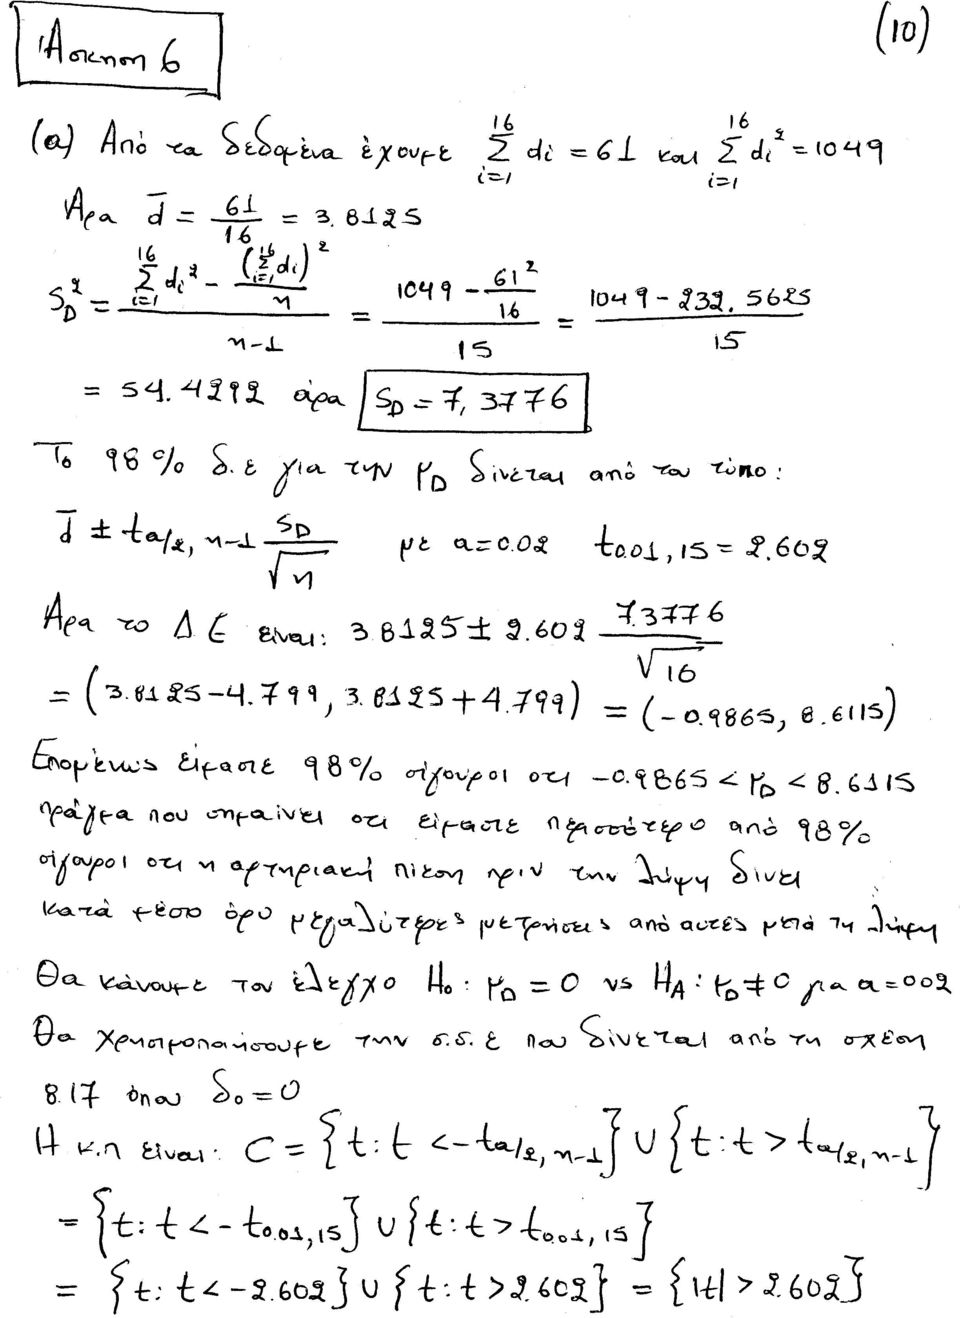 (10)
Άσκηση 6
(α) Από τα δεδομένα έχουμε $\sum_{i=1}^{16} d_i = 61$ και $\sum_{i=1}^{16} d_i^2 = 1049$
Άρα $\bar{d} = \frac{61}{16} = 3.8125$
$S_D^2 = \frac{\sum_{i=1}^{16} d_i^2 - \frac{(\sum_{i=1}^{16} d_i)^2}{n}}{n-1} = \frac{1049 - \frac{61^2}{16}}{15} = \frac{1049 - 232.5625}{15}$
= 54.4292 άρα $S_D = 7,3776$
Το 98% δ.ε για την $μ_D$ δίνεται από τον τύπο:
$\bar{d} \pm t_{α/2, n-1} \frac{S_D}{\sqrt{n}}$ με α=0.02 $t_{0.01, 15} = 2.602$
Άρα το ΔΕ είναι: $3.8125 \pm 2.602 \frac{7.3776}{\sqrt{16}}$
= (3.8125-4.799, 3.8125+4.799) = (-0.9865, 8.6115)
Επομένως είμαστε 98% σίγουροι οτι $-0.9865 < μ_D < 8.6115$
πράγμα που σημαίνει οτι είμαστε περισσότερο από 98%
σίγουροι οτι η αρτηριακή πίεση πριν την λήψη δίνει
κατά μέσο όρο μεγαλύτερες μετρήσεις από αυτές μετά τη λήψη
Θα κάνουμε τον έλεγχο $H_0: μ_D = 0$ vs $H_A: μ_D \neq 0$ για α=002
Θα χρησιμοποιήσουμε την σ.σ.ε που δίνεται από τη σχέση
8.17 όπου $δ_0 = 0$
Η κ.π είναι: $C = \{t: t < -t_{α/2, n-1}\} \cup \{t: t > t_{α/2, n-1}\}$
$= \{t: t < -t_{0.01, 15}\} \cup \{t: t > t_{0.01, 15}\}$
$= \{t: t < -2.602\} \cup \{t: t > 2.602\} = \{|t| > 2.602\}$